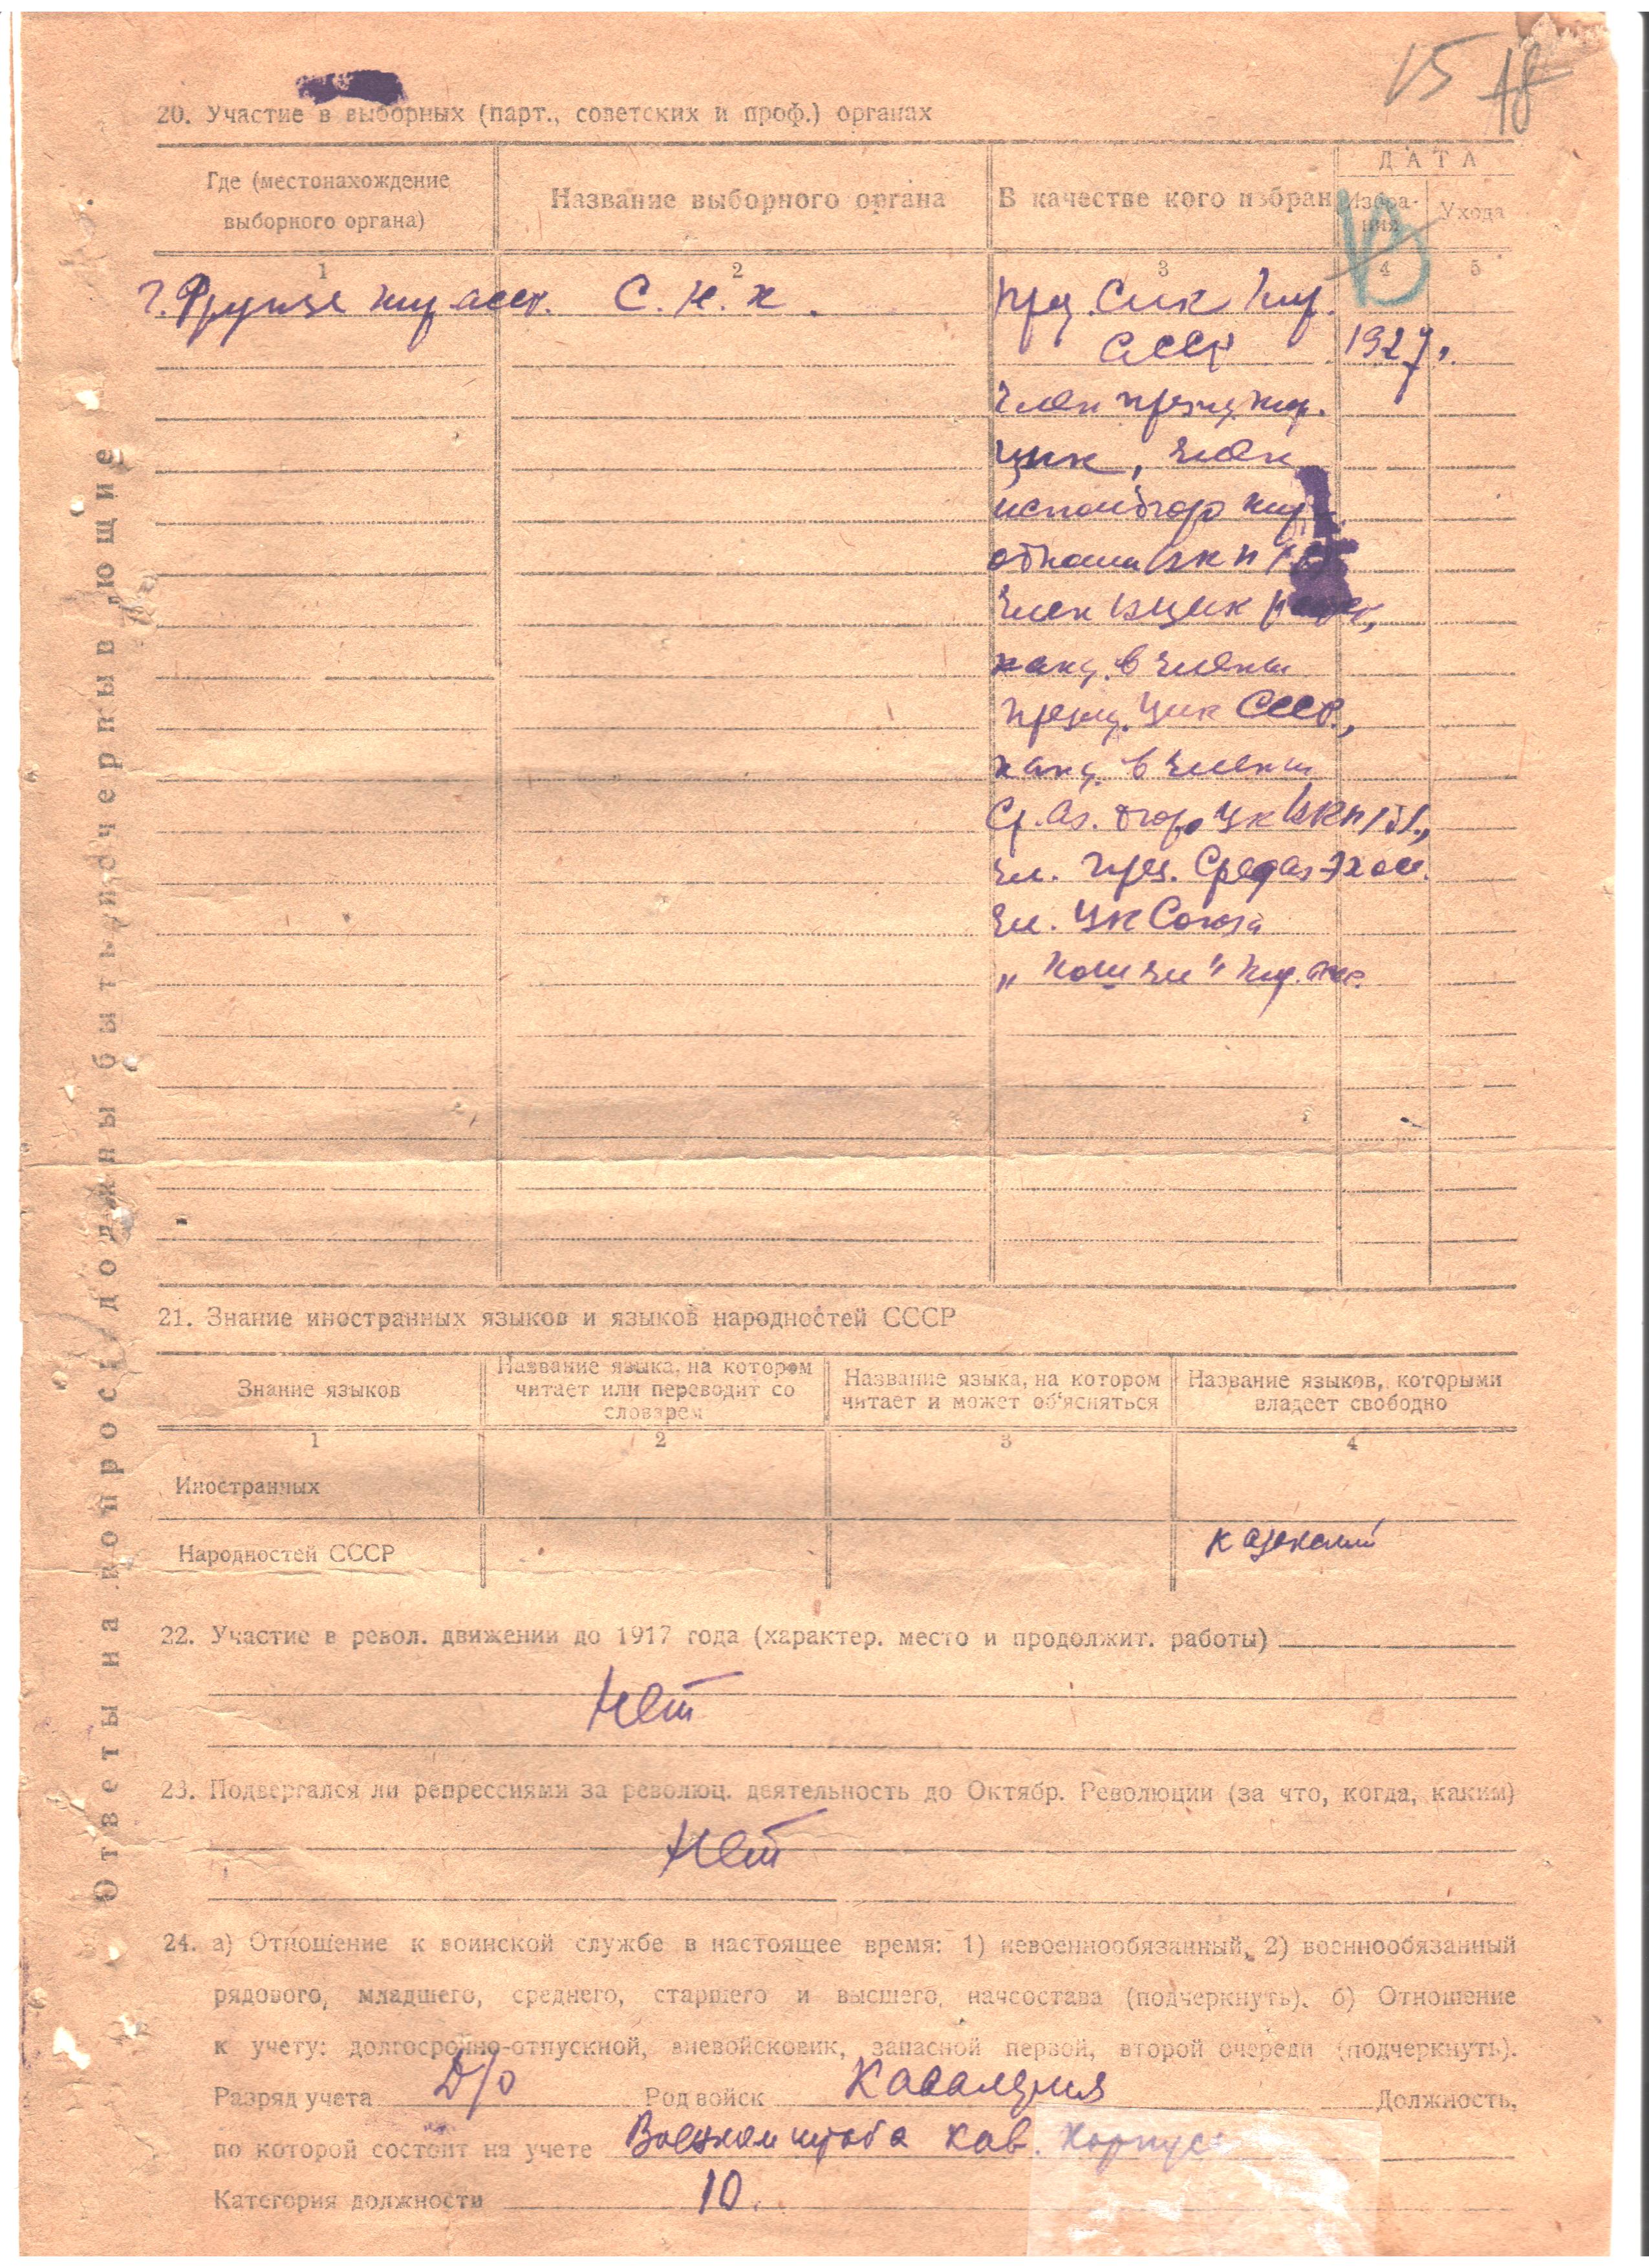 15 18
20. Участие в выборных (парт., советских и проф.) органах
Где (местонахождение выборного органа)
Название выборного органа
В качестве кого избран
ДАТА
Избра-
ния
Ухода
1 2 3 4 5
В
г. Фрунзе Кир. АССР. С. Н. К.
Пред. СНК Кир.
АССР 1927 г.
Член презид. Кир.
ЦИК, член
исполбюро Кир.
обкома ВКП
член ВЦИК
канд. в члены
Презид. ЦИК СССР,
канд. в члены
Ср. Аз. бюро ЦК ВКП/б/,
чл. През. Средаз ЭКОС.
чл. ЦК Союза
„Кошчи" Кир. АССР.
21. Знание иностранных языков и языков народностей СССР
Знание языков
Название языка, на котором
читает или переводит со
словарем
Название языка, на котором
читает и может об'ясняться
Название языков, которыми
владеет свободно
1 2 3 4
Иностранных
Народностей СССР казахский
22. Участие в револ. движении до 1917 года (характер. место и продолжит. работы)
Нет
23. Подвергался ли репрессиями за революц. деятельность до Октябр. Революции (за что, когда, каким)
Нет
24. а) Отношение к воинской службе в настоящее время: 1) невоеннообязанный, 2) военнообязанный
рядового, младшего, среднего, старшего и высшего, начсостава (подчеркнуть). б) Отношение
к учету: долгосрочно-отпускной, вневойсковик, запасной первой, второй очереди (подчеркнуть).
Разряд учета Д/о Род войск Кавалерия Должность,
по которой состоит на учете Военком штаба Кав. Корпуса
Категория должности 10.
Ответы на вопросы должны быть исчерпывающие